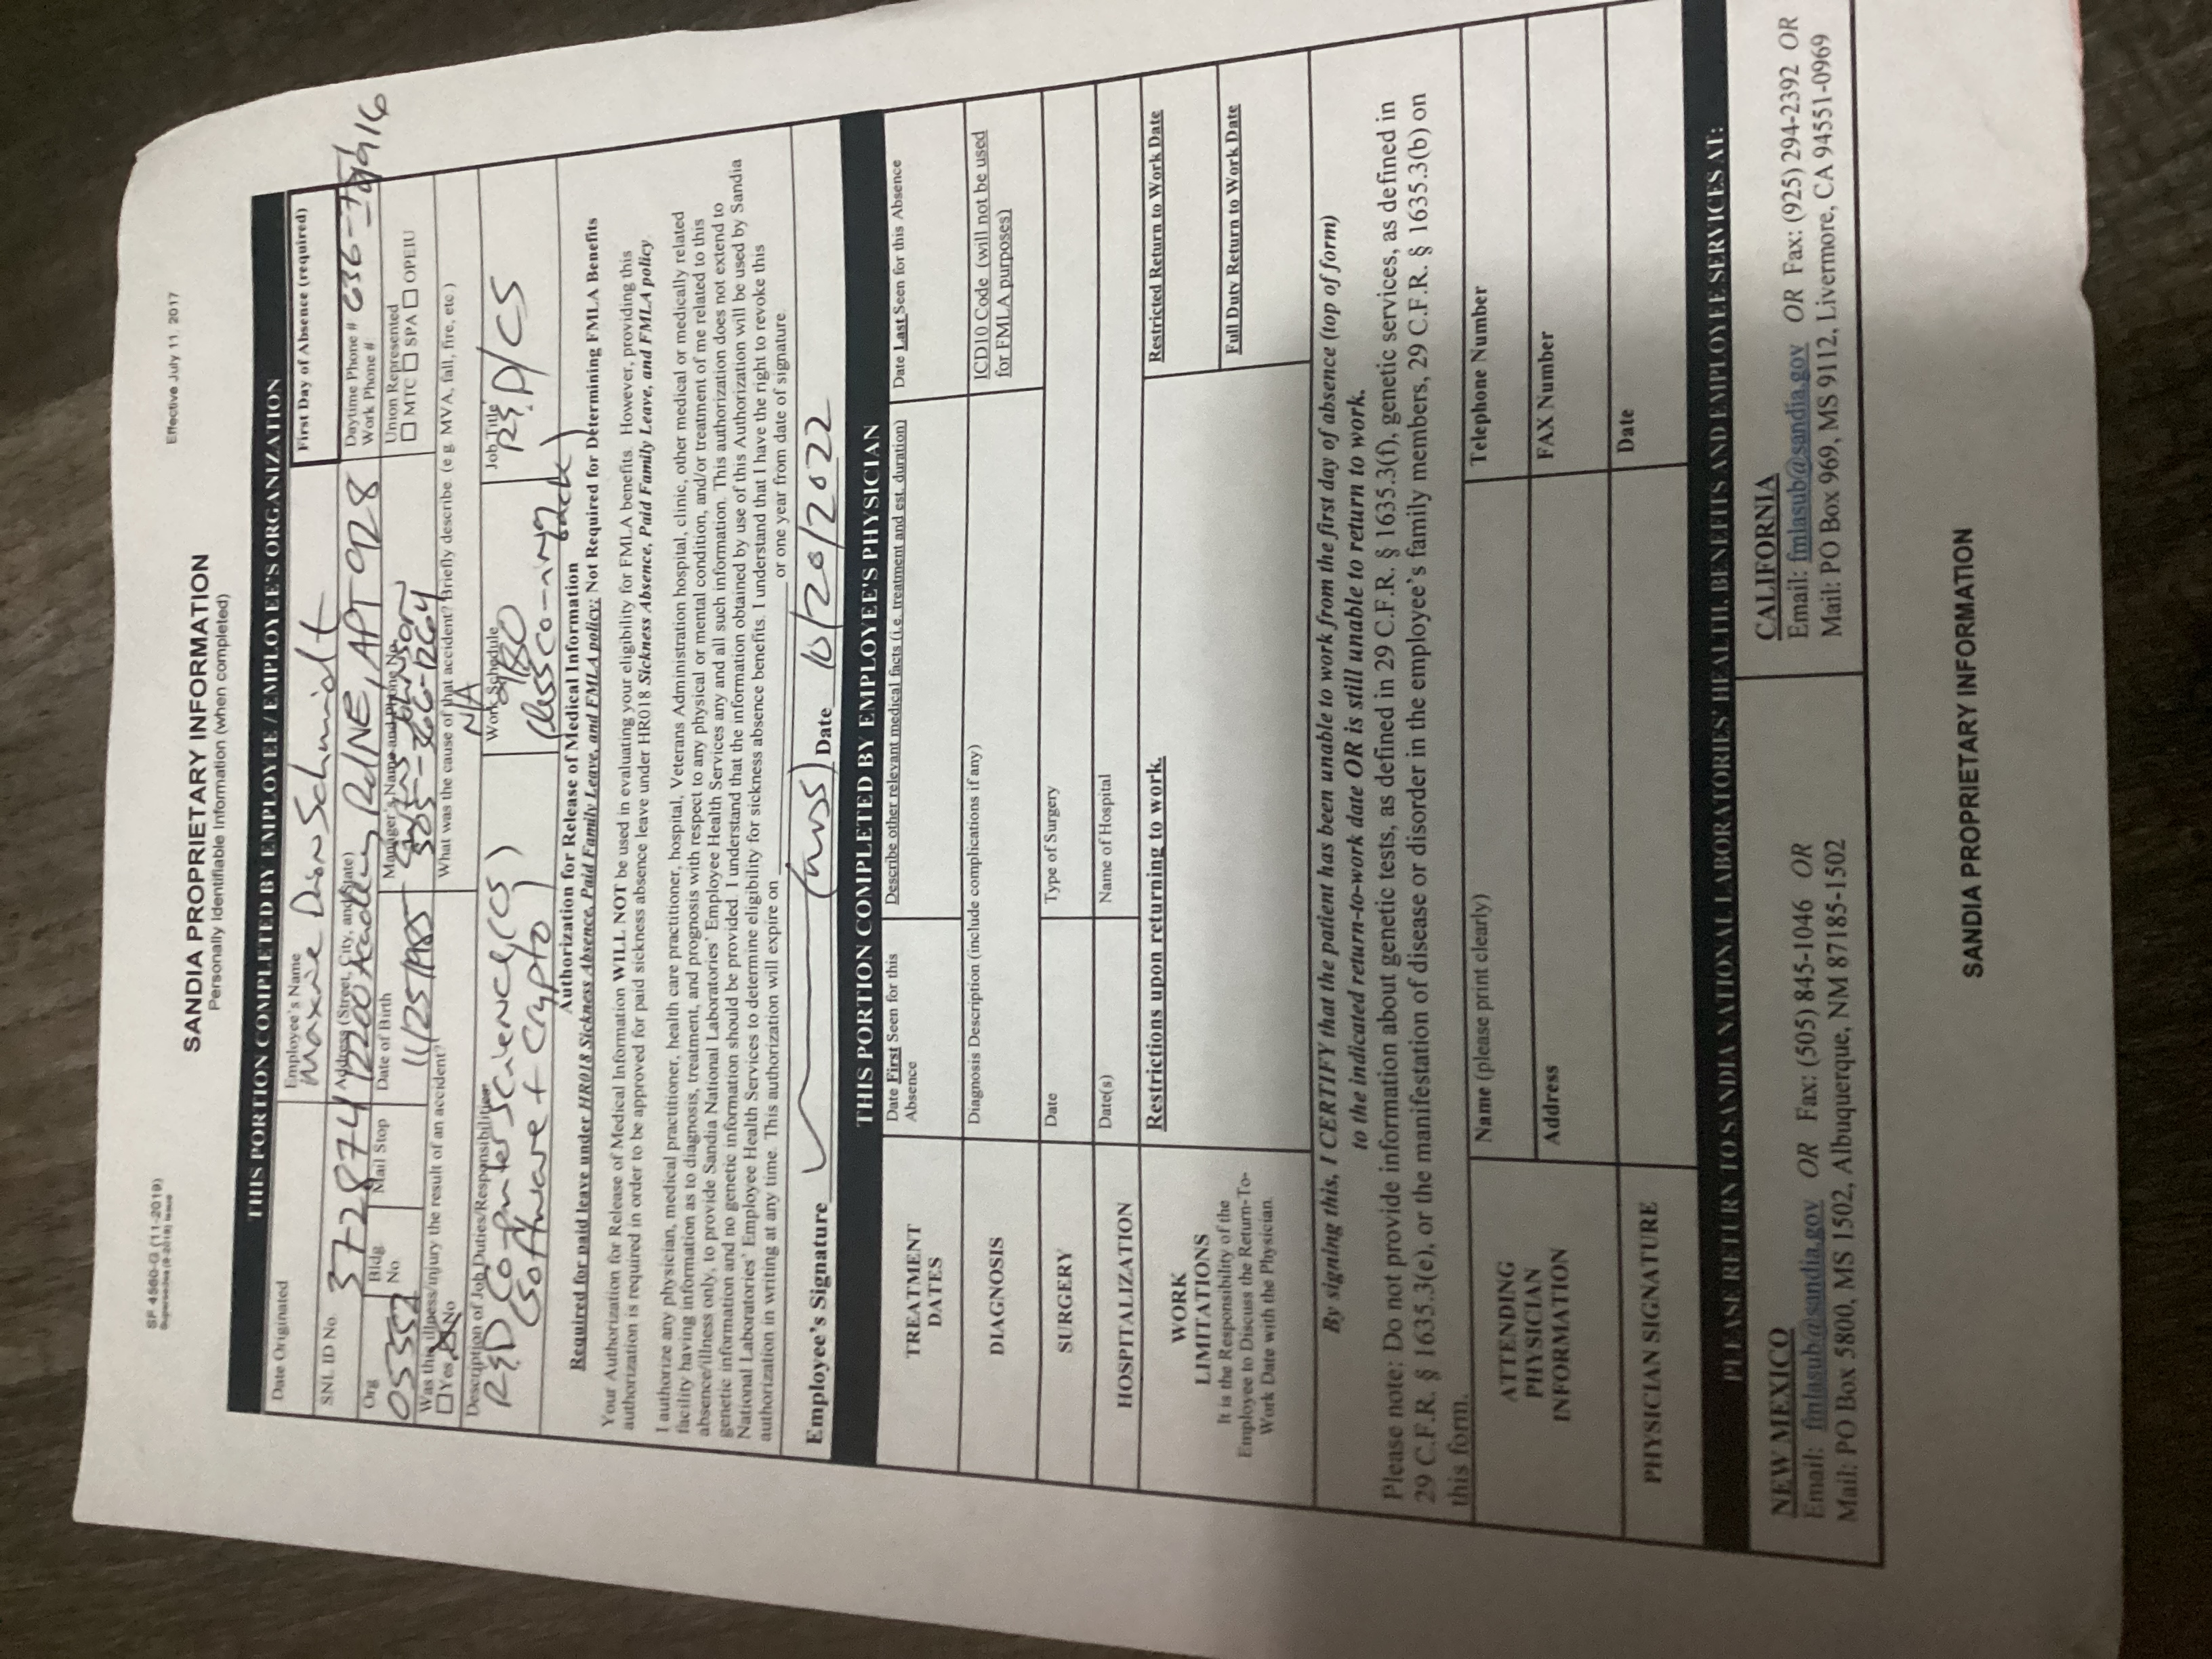 SF 4560-G (11-2019)
Supersedes (9-2018) Issue
Effective July 11, 2017
SANDIA PROPRIETARY INFORMATION
Personally Identifiable Information (when completed)
THIS PORTION COMPLETED BY EMPLOYEE / EMPLOYEE'S ORGANIZATION
Date Originated
Employee's Name
Schmidt
First Day of Absence (required)
SNL ID No.
372874
Address (Street, City, and State)
12200 Academy Rd NE, APT 928
Daytime Phone # 636-
Work Phone #
Org
05552
Bldg No
Mail Stop
Date of Birth
11/25/1985
Manager's Name and Phone No.
Johnson
505-366-1264
Union Represented
MTC SPA OPEIU
Was this illness/injury the result of an accident?
Yes No
What was the cause of that accident? Briefly describe (e.g. MVA, fall, fire, etc.)
N/A
Description of Job Duties/Responsibilities
R&D Computer Science (CS)
(Software + Crypto)
Work Schedule
9/80
(less coming back)
Job Title
R&D/CS
Authorization for Release of Medical Information
Required for paid leave under HR018 Sickness Absence, Paid Family Leave, and FMLA policy; Not Required for Determining FMLA Benefits
Your Authorization for Release of Medical Information WILL NOT be used in evaluating your eligibility for FMLA benefits. However, providing this
authorization is required in order to be approved for paid sickness absence leave under HR018 Sickness Absence, Paid Family Leave, and FMLA policy.
I authorize any physician, medical practitioner, health care practitioner, hospital, Veterans Administration hospital, clinic, other medical or medically related
facility having information as to diagnosis, treatment, and prognosis with respect to any physical or mental condition, and/or treatment of me related to this
absence/illness only, to provide Sandia National Laboratories' Employee Health Services any and all such information. This authorization does not extend to
genetic information and no genetic information should be provided. I understand that the information obtained by use of this Authorization will be used by Sandia
National Laboratories' Employee Health Services to determine eligibility for sickness absence benefits. I understand that I have the right to revoke this
authorization in writing at any time. This authorization will expire on or one year from date of signature.
Employee's Signature Date 10/20/2022
THIS PORTION COMPLETED BY EMPLOYEE'S PHYSICIAN
TREATMENT
DATES
Date First Seen for this
Absence
Describe other relevant medical facts (i.e. treatment and est. duration)
Date Last Seen for this Absence
DIAGNOSIS
Diagnosis Description (include complications if any)
ICD10 Code (will not be used
for FMLA purposes)
SURGERY
Date
Type of Surgery
HOSPITALIZATION
Date(s)
Name of Hospital
WORK
LIMITATIONS
It is the Responsibility of the
Employee to Discuss the Return-To-
Work Date with the Physician.
Restrictions upon returning to work.
Restricted Return to Work Date
Full Duty Return to Work Date
By signing this, I CERTIFY that the patient has been unable to work from the first day of absence (top of form)
to the indicated return-to-work date OR is still unable to return to work.
Please note: Do not provide information about genetic tests, as defined in 29 C.F.R. § 1635.3(f), genetic services, as defined in
29 C.F.R. § 1635.3(e), or the manifestation of disease or disorder in the employee's family members, 29 C.F.R. § 1635.3(b) on
this form.
ATTENDING
PHYSICIAN
INFORMATION
Name (please print clearly)
Telephone Number
Address
FAX Number
PHYSICIAN SIGNATURE
Date
PLEASE RETURN TO SANDIA NATIONAL LABORATORIES' HEALTH, BENEFITS AND EMPLOYEE SERVICES AT:
NEW MEXICO
Email: fmlasub@sandia.gov OR Fax: (505) 845-1046 OR
Mail: PO Box 5800, MS 1502, Albuquerque, NM 87185-1502
CALIFORNIA
Email: fmlasub@sandia.gov OR Fax: (925) 294-2392 OR
Mail: PO Box 969, MS 9112, Livermore, CA 94551-0969
SANDIA PROPRIETARY INFORMATION